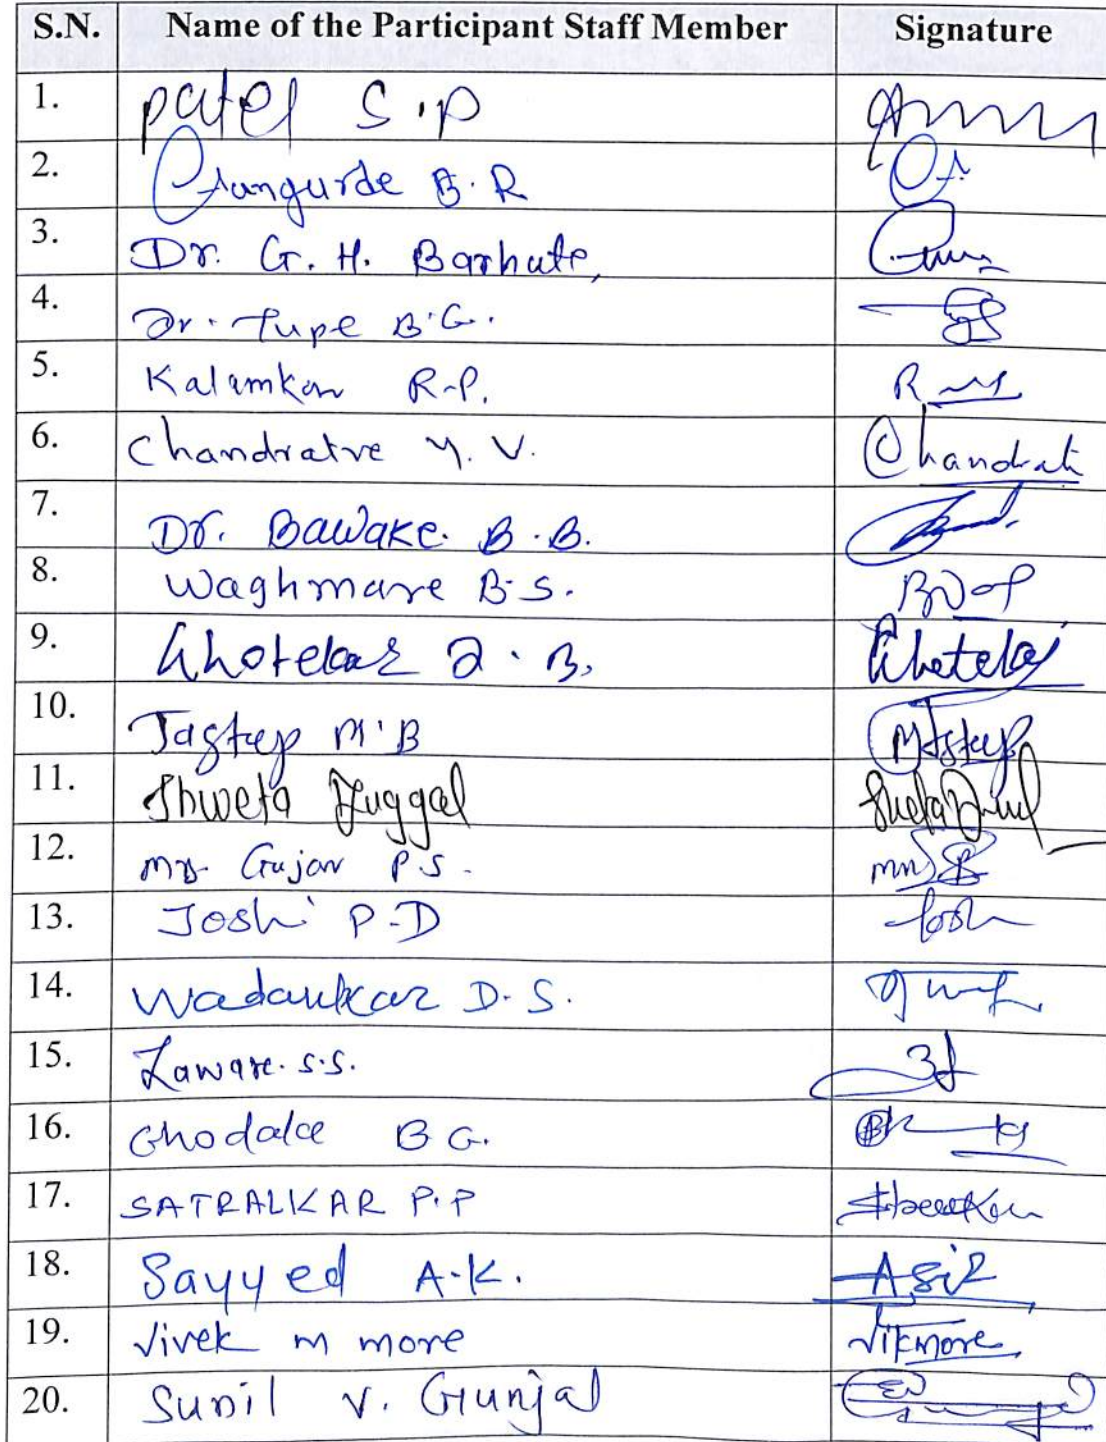 S.N. Name of the Participant Staff Member Signature
1. Patel S.P
2. B.R
3. Dr. G. H. Barhate,
4. Dr. Tupe B.G.
5. Kalamkar R.P.
6. Chandratre Y. V. Chandratr
7. Dr. Bawake. B.B.
8. Waghmare B.S.
9. Ghotekar D.B. Ghotekar
10. Jagtap M.B MJgtap
11. Shweta Duggal
12. Mr. Gujar P.S.
13. Joshi P.D Josh
14. Wadankar D.S.
15. Laware. S.S.
16. Ghodake B G.
17. SATRALKAR P.P
18. Sayyed A.K. Asif
19. Vivek m more Vikmore
20. Sunil V. Gunjal